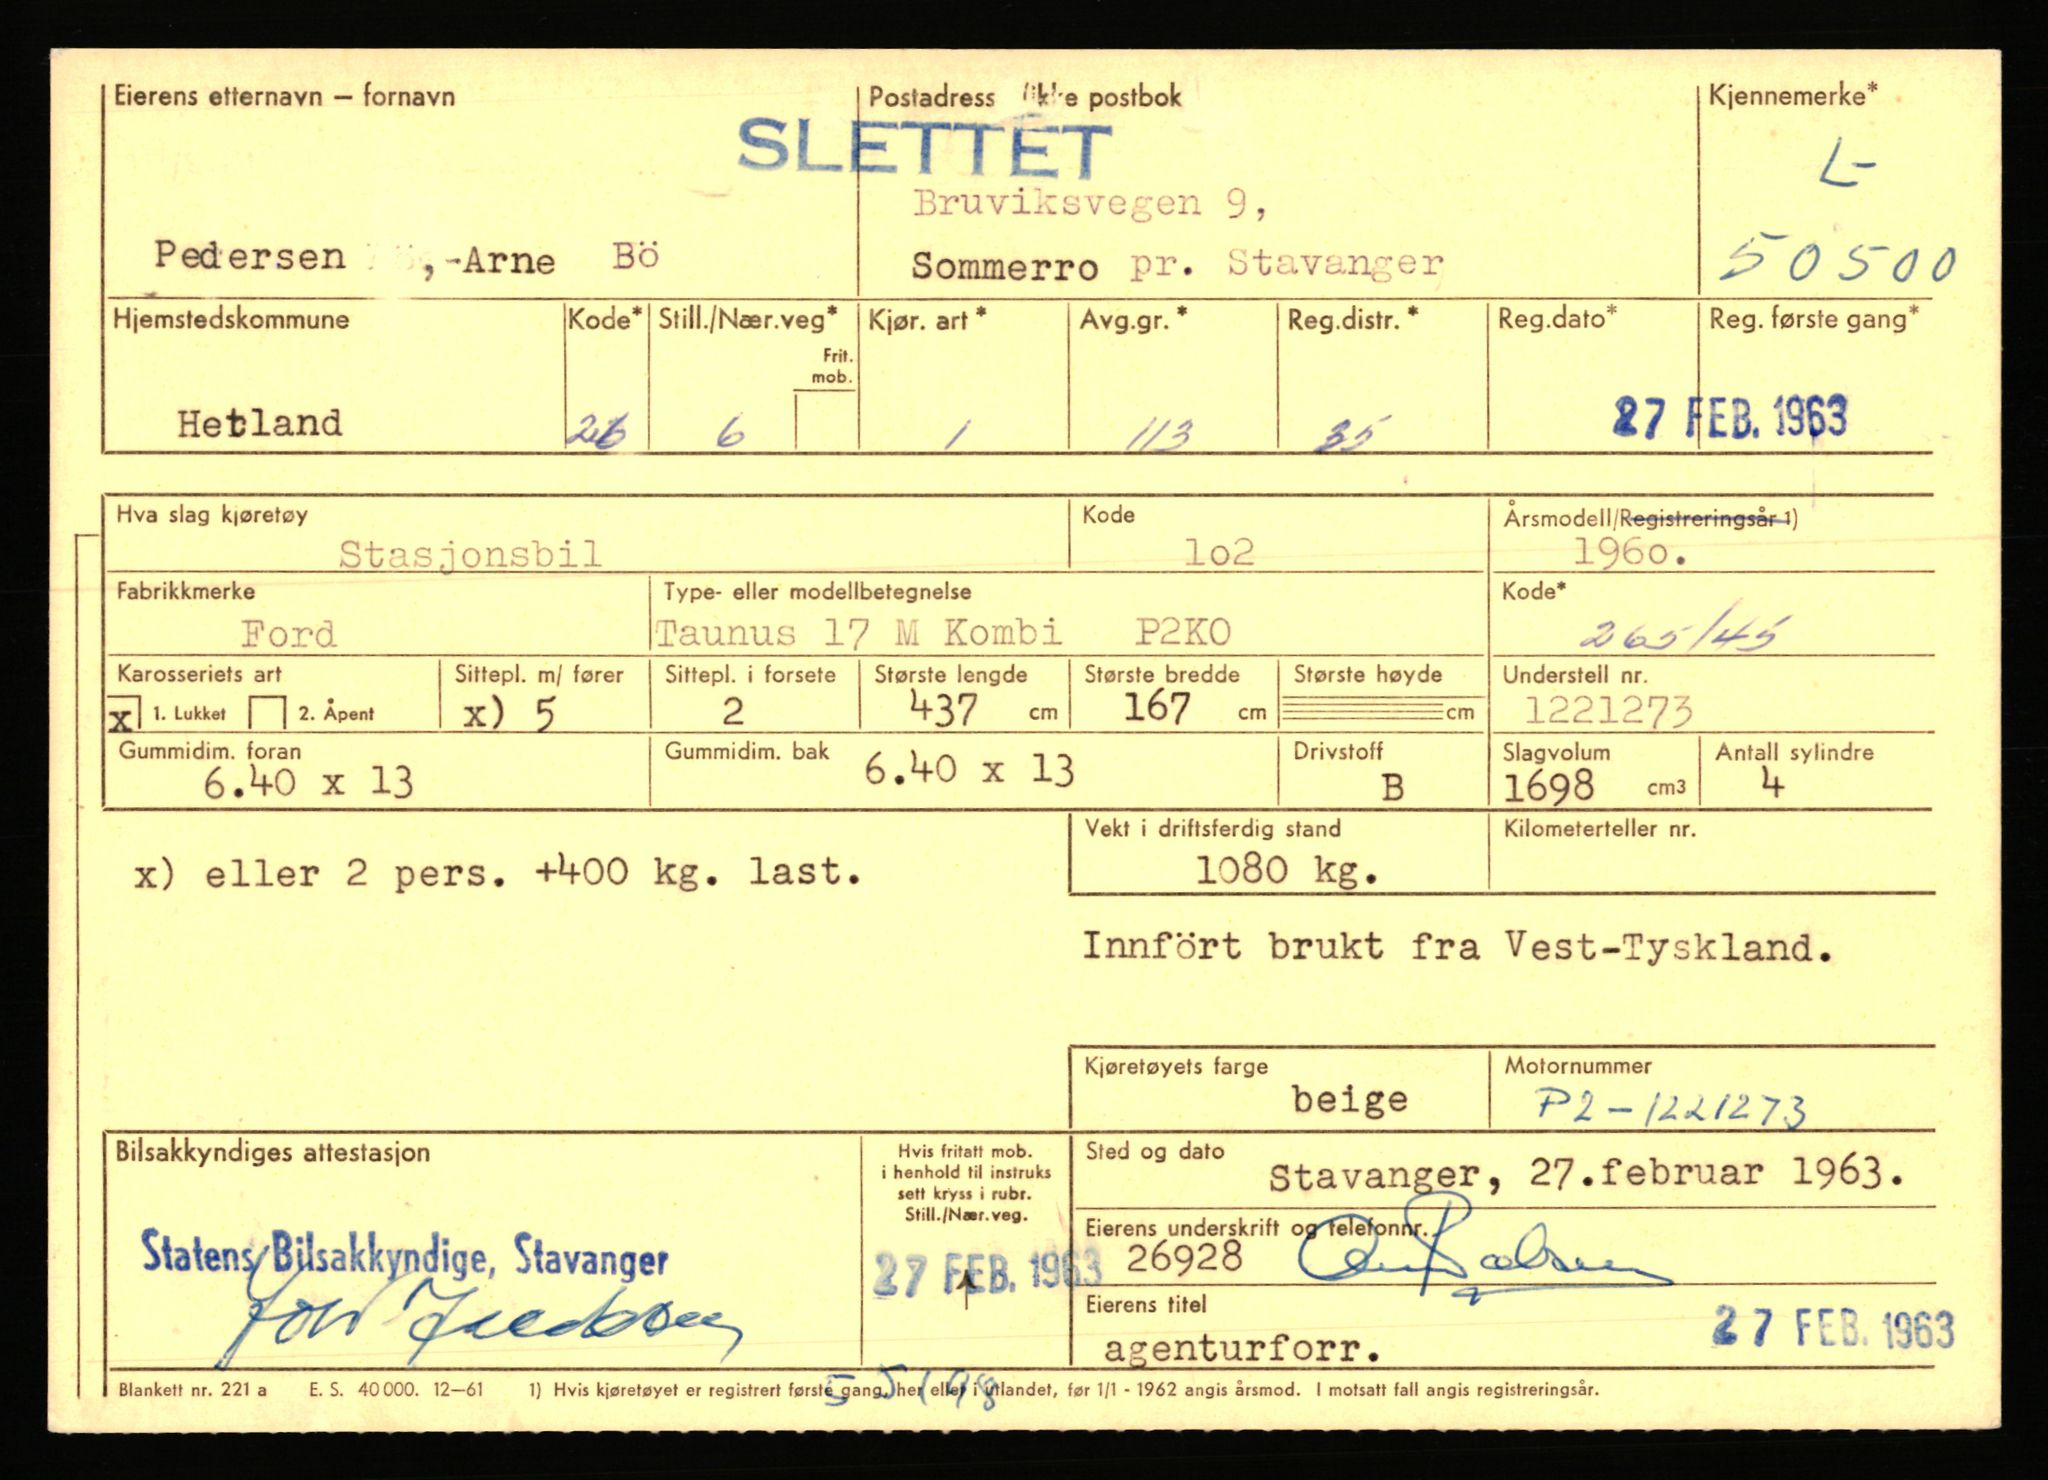 Eierens etternavn – fornavn
Postadress ikke postbok
Kjennemerke*
SLETTET
L-
Bruviksvegen 9,
Pedersen , -Arne Bö
Sommerro pr. Stavanger
50500
Hjemstedskommune
Kode*
Still./Nær.veg*
Frit. mob.
Kjør. art *
Avg.gr. *
Reg.distr. *
Reg.dato*
Reg. første gang*
Hetland
26
6
1
113
35
27 FEB. 1963
Hva slag kjøretøy
Kode
Årsmodell/Registreringsår 1)
Stasjonsbil
1o2
196o.
Fabrikkmerke
Type- eller modellbetegnelse
Kode*
Ford
Taunus 17 M Kombi P2KO
265/45
Karosseriets art
Sittepl. m/ fører
Sittepl. i forsete
Største lengde
Største bredde
Største høyde
Understell nr.
x 1. Lukket 2. Åpent
x) 5
2
437 cm
167 cm
cm
1221273
Gummidim. foran
Gummidim. bak
Drivstoff
Slagvolum
Antall sylindre
6.40 x 13
6.40 x 13
B
1698 cm3
4
Vekt i driftsferdig stand
Kilometerteller nr.
x) eller 2 pers. +400 kg. last.
1080 kg.
Innfört brukt fra Vest-Tyskland.
Kjøretøyets farge
Motornummer
beige
P2-1221273
Bilsakkyndiges attestasjon
Hvis fritatt mob.
i henhold til instruks
sett kryss i rubr.
Still./Nær.veg.
Sted og dato
Stavanger, 27.februar 1963.
Eierens underskrift og telefonnr.
26928
Statens Bilsakkyndige, Stavanger
27 FEB. 1963
Eierens titel
agenturforr.
27 FEB. 1963
Blankett nr. 221 a E. S. 40 000. 12–61 1) Hvis kjøretøyet er registrert første gang, her eller i utlandet, før 1/1 - 1962 angis årsmod. I motsatt fall angis registreringsår.